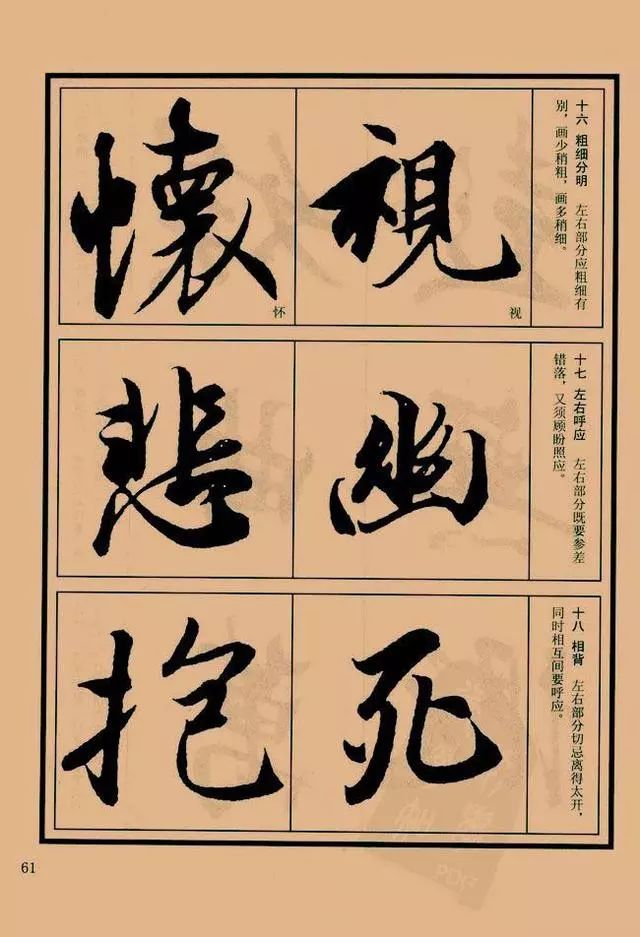 十六 粗细分明 左右部分应粗细有
别，画少稍粗，画多稍细。
視
视
懷
怀
十七 左右呼应 左右部分既要参差
错落，又须顾盼照应。
幽
悲
十八 相背 左右部分切忌离得太开，
同时相互间要呼应。
死
抱
61
PDF